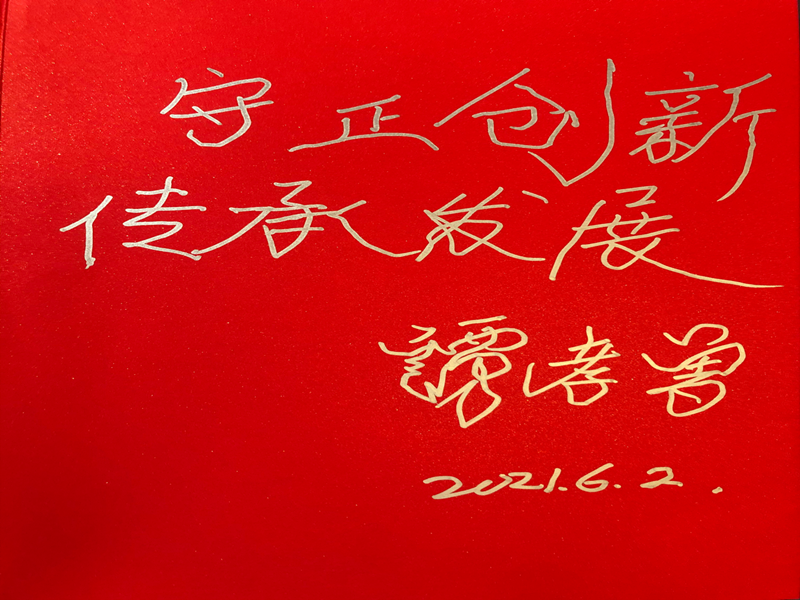 守正创新
传承发展
谭孝曾
2021.6.2.